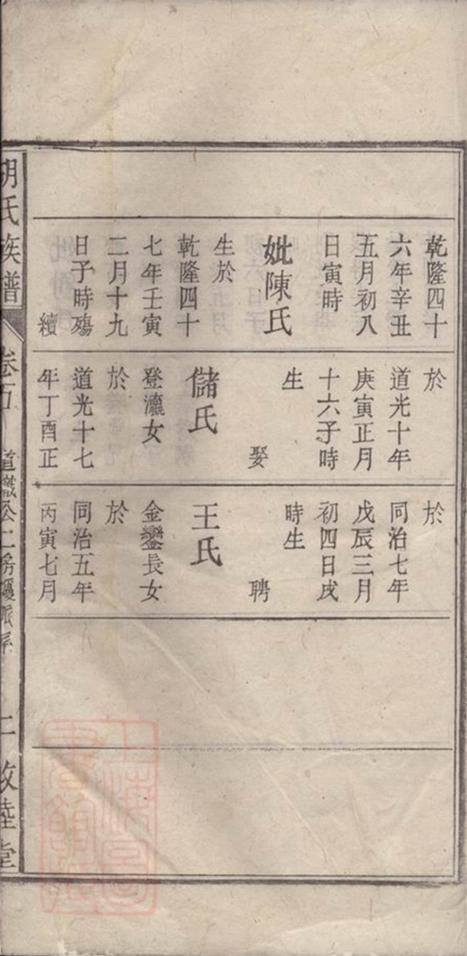 乾隆四十
六年辛丑
五月初八
日寅時
妣陳氏
生於
乾隆四十
七年壬寅
二月十九
日子時殤
續
於
道光十年
庚寅正月
十六子時
生
娶
儲氏
登瀛女
於
道光十七
年丁酉正
於
同治七年
戊辰三月
初四日戌
時生
聘
王氏
金鑾長女
於
同治五年
丙寅七月
胡氏族譜
卷
道公二房
敦睦堂